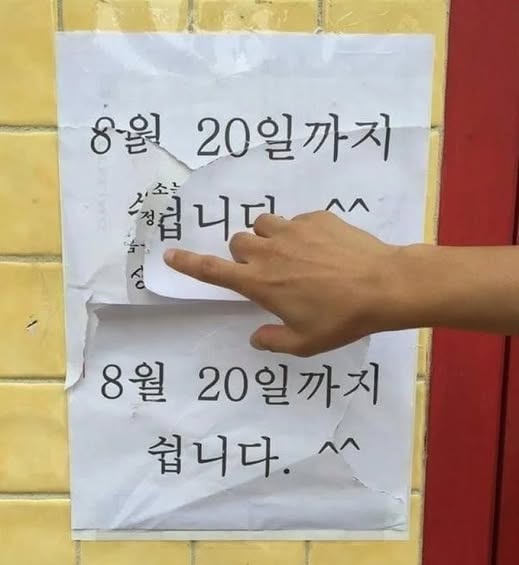 8월 20일까지
쉽니다. ^^
소는
정
8월 20일까지
쉽니다. ^^